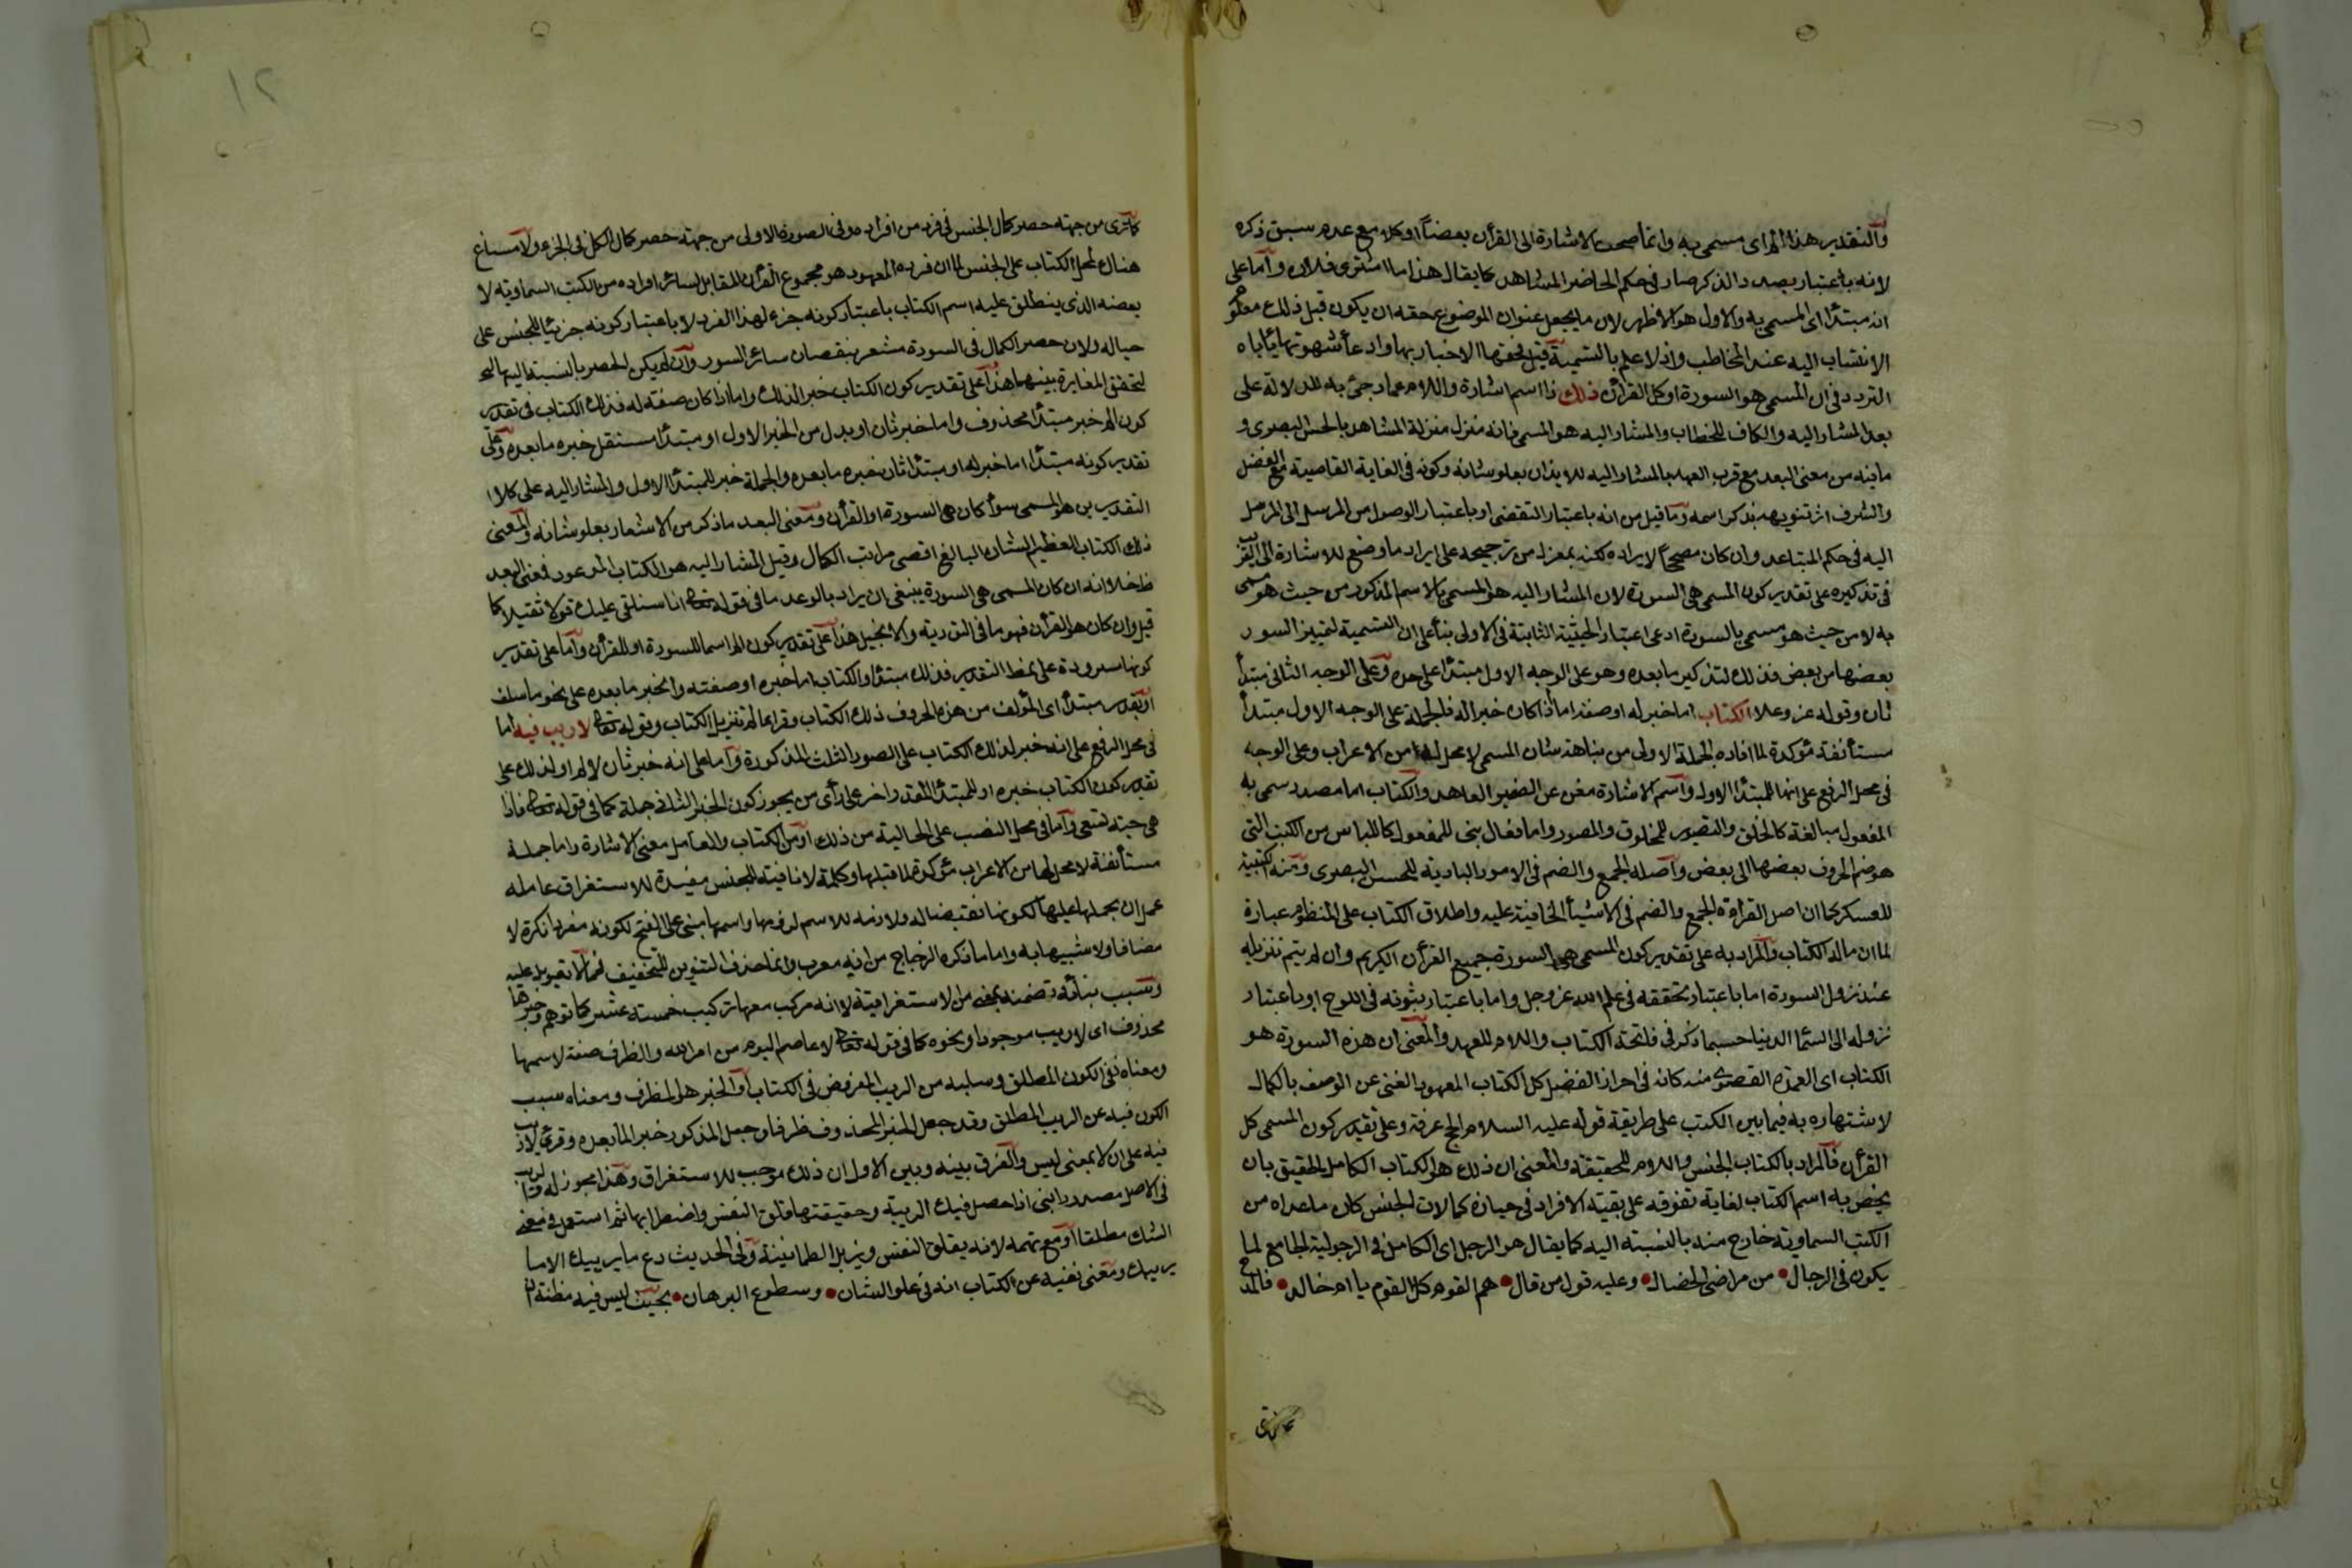 والتقدير هذا الم اى مسمى به وانما صحت الاشارة الى القرأن بعضاً او كلا مع عدم سبق ذكره
لانه باعتبار بصدد الذكر صار فى حكم الحاضر المشاهد كما يقال هذا ما اشترى فلان وأما على
انه مبتدأ اى المسمى به والاول هو الاظهر لان ما يجعل عنوان الموضوع حقه ان يكون قبل ذلك معلوم
الانتساب اليه عند المخاطب واذ لا علم بالتسمية قبل فحقها الاخبار بها وادعاء شهرتها يأباه
التردد فى ان المسمى هو السورة او كل القرأن ذلك ذا اسم اشارة واللام عماد جئ به للدلالة على
بعد المشار اليه والكاف للخطاب والمشار اليه هو المسمى فانه منزل منزلة المشاهد بالحس البصرى و
ما فيه من معنى البعد مع قرب العهد بالمشار اليه للايذان بعلو شانه وكونه فى الغاية القاصية من الفضل
والشرف اثر تنويهه بذكر اسمه وما قيل من انه باعتبار التقضى او باعتبار الوصول من المرسل الى المرسل
اليه فى حكم المتباعد وان كان مصححاً لايراده لكنه بمعزل من ترجيحه على ايراد ما وضع للاشارة الى القريب
فى تذكيره على تقدير كون المسمى هى السورة لان المشار اليه هو المسمى بالاسم المذكور من حيث هو مسمى
به لا من حيث هو مسمى بالسورة ادعى اعتبار الحيثية الثابتة فى الاولى بناء على ان التسمية لتمييز السور
بعضها من بعض فذلك لتذكير ما بعده وهو على الوجه الاول مبتدأ على حده وعلى الوجه الثانى مبتدأ
ثان وقوله عز وعلا الكتاب اما خبر له او صفة اما اذا كان خبرا له فالجملة على الوجه الاول مبتدأ
مستأنفة مؤكدة لما افاده الجملة الاولى من نباهة شان المسمى لا محل لها من الاعراب وعلى الوجه
فى محل الرفع على انها للمبتدأ الاول واسم الاشارة مغن عن الضمير العائد والكتاب اما مصدر سمى به
المفعول مبالغة كالخلق والتصوير للمخلوق والمصور واما فعال بنى للمفعول كاللباس من الكتب التى
هو ضم الحروف بعضها الى بعض وأصله الجمع والضم فى الامور البادية للحس البصرى ومنه الكتيبة
للعسكر كما ان اصل القراءة الجمع والضم فى الاشياء الخافية عليه واطلاق الكتاب على المنظوم عبارة
لما ان مآله الكتاب والمراد به على تقدير كون المسمى هى السورة جميع القرأن الكريم وان لم يتم تنزيله
عند نزول السورة اما باعتبار تحققه فى علم الله عز وجل واما باعتبار ثبوته فى اللوح او باعتبار
نزوله الى السماء الدنيا حسبما ذكر فى فاتحة الكتاب واللام للعهد والمعنى ان هذه السورة هو
الكتاب اى العمدة القصوى منه كانه فى احراز الفضل كل الكتاب المعهود الغنى عن الوصف بالكمال
لاشتهاره به فيما بين الكتب على طريقة قوله عليه السلام الحج عرفة وعلى تقدير كون المسمى كل
القرأن فالمراد بالكتاب الجنس واللام للحقيقة والمعنى ان ذلك هو الكتاب الكامل الحقيق بان
يخص به اسم الكتاب لغاية تفوقه على بقية الافراد فى حيازة كمالات الجنس كان ما عداه من
الكتب السماوية خارج منه بالنسبة اليه كما يقال هو الرجل اى الكامل فى الرجولية الجامع لما
يكون فى الرجال من مراضى الخصال وعليه قول من قال هم القوم كل القوم يا ام خالد فالمدح
كما ترى
كما ترى من جهة حصر كمال الجنس فى فرد من افراده وفى الصورة الاولى من جهة حصر كمال الكل فى الجزء ولا مساغ
هناك لحمل الكتاب على الجنس لما ان فرده المعهود هو مجموع القرأن المقابل لسائر افراده من الكتب السماوية لا
بعضه الذى ينطلق عليه اسم الكتاب باعتبار كونه جزء لهذا الفرد لا باعتبار كونه جزئيا للجنس على
حياله ولان حصر الكمال فى السورة مشعر بنقصان سائر السور وان لم يكن الحصر بالنسبة اليها
لتحقق المغايرة بينهما هذا على تقدير كون الكتاب خبرا لذلك واما اذا كان صفة له فذلك الكتاب فى تقدير
كون الم خبر مبتدأ محذوف واما خبر ثان او بدل من الخبر الاول او مبتدأ مستقل خبره ما بعده وعلى
تقدير كونه مبتدأ اما خبر له او مبتدأ ثان خبره ما بعده والجملة خبر للمبتدأ الاول والمشار اليه على كلا
التقديرين هو المسمى سواء كان هى السورة او القرأن ومعنى البعد ما ذكر من الاشعار بعلو شانه والمعنى
ذلك الكتاب العظيم الشان البالغ اقصى مراتب الكمال وقيل المشار اليه هو الكتاب الموعود فمعنى البعد
ظ خلا انه ان كان المسمى هى السورة ينبغى ان يراد بالوعد ما فى قوله تعالى انا سنلقى عليك قولا ثقيلا كما
قيل وان كان هو القرأن فهو ما فى التورية والانجيل هذا على تقدير كون الم اسما للسورة او للقرأن وأما على تقدير
كونها مسرودة على نمط التقدير فذلك مبتدأ والكتاب اما خبره او صفته والخبر ما بعده على نحو ما سلف
او يقدر مبتدأ اى المؤلف من هذه الحروف ذلك الكتاب وقرئ الم تنزيل الكتاب وقوله تعالى لا ريب فيه اما
فى محل الرفع على انه خبر لذلك الكتاب على الصور الثلث المذكورة وأما على انه خبر ثان لالم او لذلك على
تقدير كون الكتاب خبره او للمبتدأ المقدر اخر على رأى من يجوز كون الخبر الثانى جملة كما فى قوله تعالى فاذا
هى حية تسعى وأما فى محل النصب على الحالية من ذلك او من الكتاب والعامل معنى الاشارة واما جملة
مستأنفة لا محل لها من الاعراب مؤكدة لما قبلها وكلمة لا نافية للجنس مفيدة للاستغراق عاملة
عمل ان بحملها عليها لكونها نقيضا لها ولازمة للاسم لزومها واسمها مبنى على الفتح لكونه مفردا نكرة لا
مضافا ولا شبيها به واما ما ذكره الزجاج من انه معرب وانما حذف التنوين للتخفيف فمما لا تعويل عليه
وسبب بنائه تضمنه لمعنى من الاستغراقية لا انه مركب معها تركيب خمسة عشر كما توهم وخبرها
محذوف اى لا ريب موجود او نحوه كما فى قوله تعالى لا عاصم اليوم من امر الله والظرف صفة لاسمها
ومعناه نفى الكون المطلق وسلبه من الريب المفروض فى الكتاب او الخبر هو الظرف ومعناه سلب
الكون فيه عن الريب المطلق وقد جعل الخبر المحذوف ظرفا وجعل المذكور خبرا لما بعده وقرئ لا ريب
فيه على ان لا بمعنى ليس والفرق بينه وبين الاول ان ذلك موجب للاستغراق وهذا مجوز له والريب
فى الاصل مصدر رابنى اذا حصل فيك الريبة وحقيقتها قلق النفس واضطرابها ثم استعمل فى معنى
الشك مطلقا او مع تهمة لانه يقلق النفس ويزيل الطمانينة وفى الحديث دع ما يريبك الى ما لا
يريبك ومعنى نفيه عن الكتاب انه فى علو الشان وسطوع البرهان بحيث ليس فيه مظنة ان
١٢